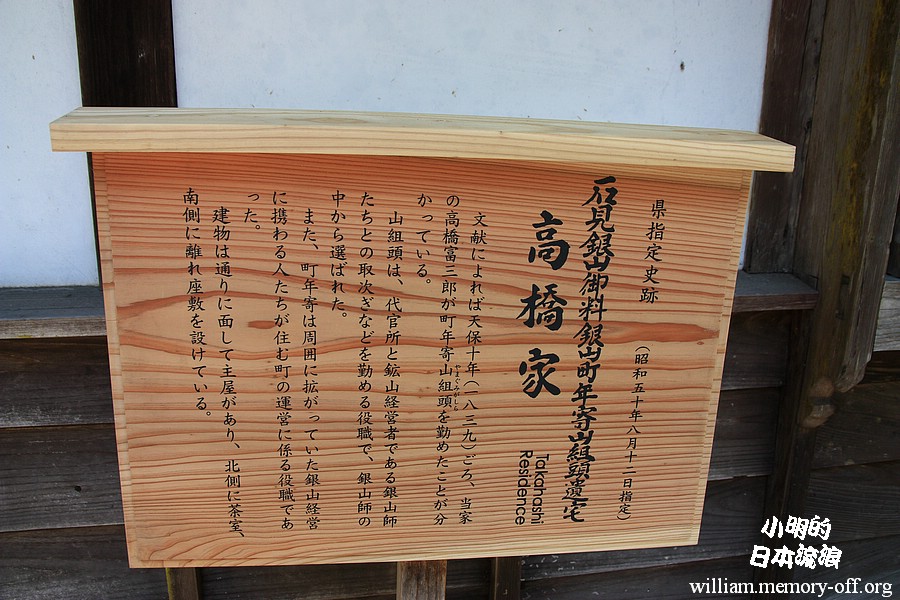 県指定史跡
（昭和五十年八月十二日指定）
石見銀山御料銀山町年寄山組頭遺宅
高橋家
Takahashi
Residence
文献によれば天保十年（一八三九）ごろ、当家
の高橋富三郎が町年寄山組頭を勤めたことが分
やまくみがしら
かっている。
山組頭は、代官所と鉱山経営者である銀山師
たちとの取次ぎなどを勤める役職で、銀山師の
中から選ばれた。
また、町年寄は周囲に拡がっていた銀山経営
に携わる人たちが住む町の運営に係る役職であ
った。
建物は通りに面して主屋があり、北側に茶室、
南側に離れ座敷を設けている。
小明的
日本流浪
william.memory-off.org